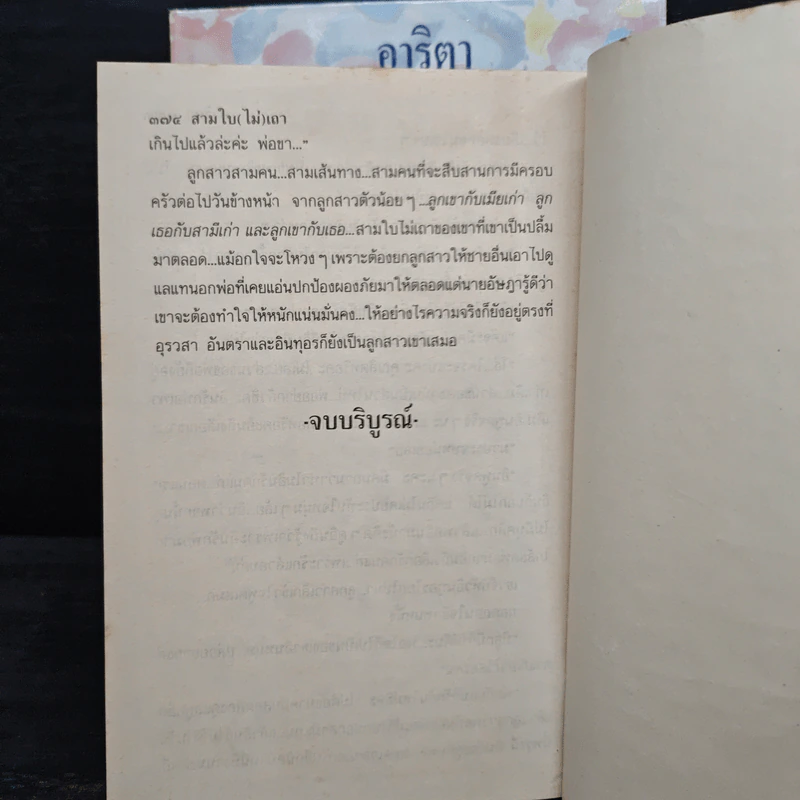 อาริตา
๓๗๔ สามใบ(ไม่)เถา
เกินไปแล้วล่ะค่ะ พ่อขา..."
ลูกสาวสามคน...สามเส้นทาง...สามคนที่จะสืบสานการมีครอบ
ครัวต่อไปวันข้างหน้า จากลูกสาวตัวน้อยๆ ...ลูกเขากับเมียเก่า ลูก
เธอกับสามีเก่า และลูกเขากับเธอ...สามใบไม่เถาของเขาที่เขาเป็นปลื้ม
มาตลอด...แม้อกใจจะโหวงๆ เพราะต้องยกลูกสาวให้ชายอื่นเอาไปดู
แลแทนอกพ่อที่เคยแอ่นปกป้องผองภัยมาให้ตลอดแต่นายอัษฎารู้ดีว่า
เขาจะต้องทำใจให้หนักแน่นมั่นคง...ให้อย่างไรความจริงก็ยังอยู่ตรงที่
อุรวสา อันตราและอินทุอรก็ยังเป็นลูกสาวเขาเสมอ
-จบบริบูรณ์-